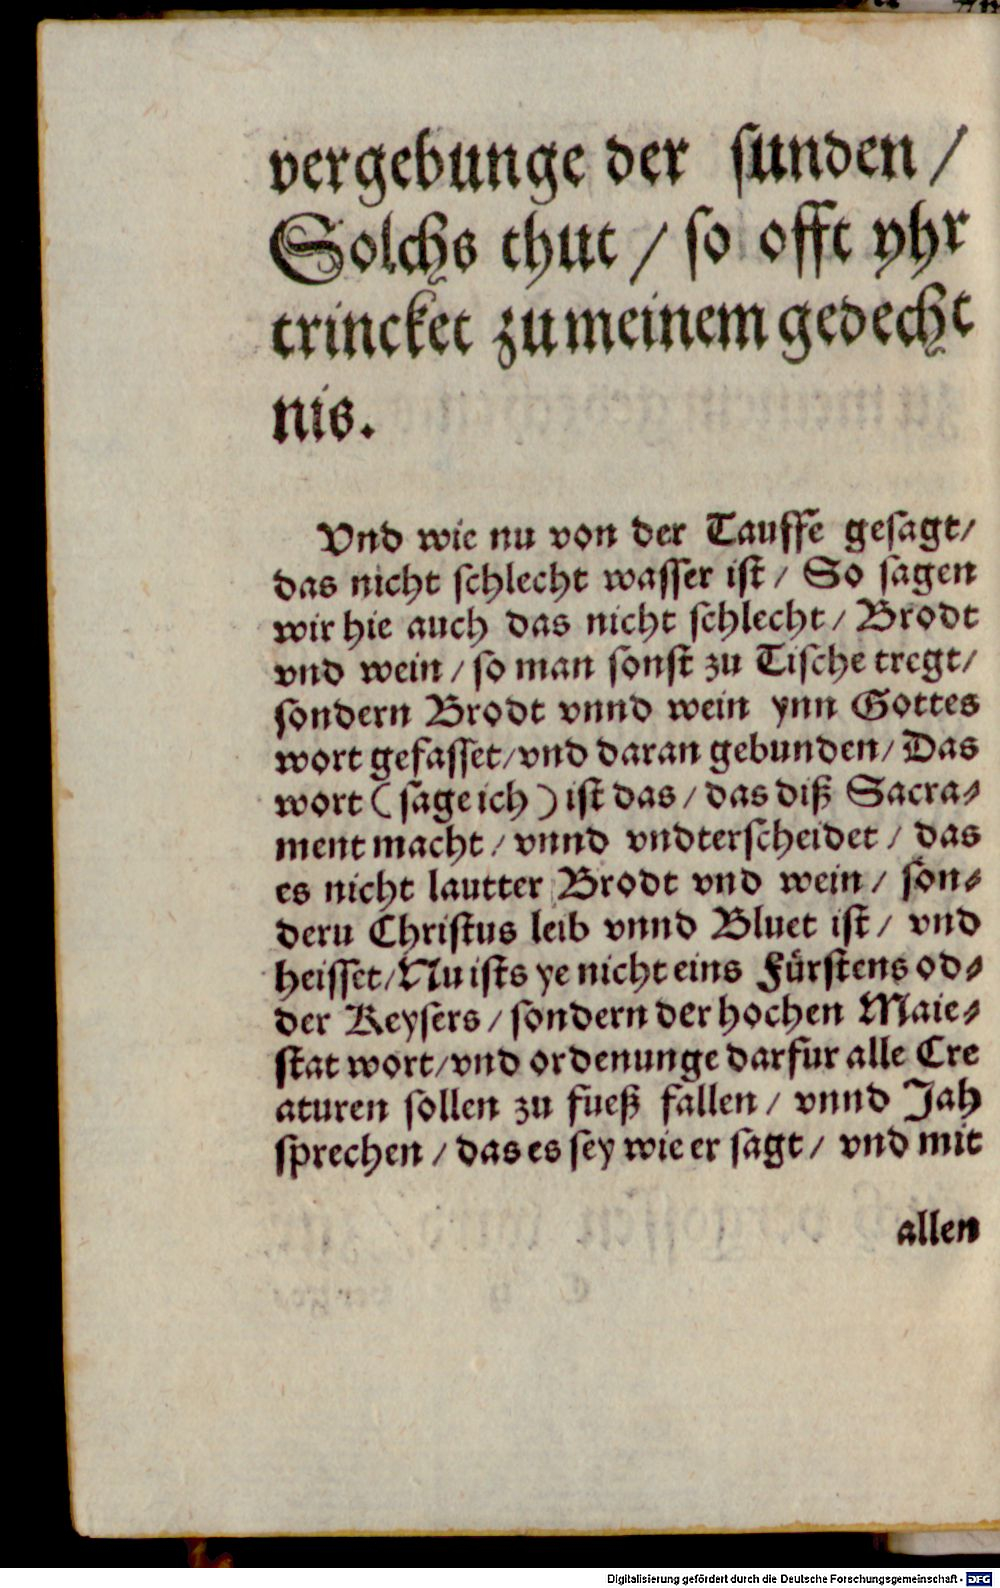 vergebunge der sunden /
Solchs thut / so offt yhr
trincket zu meinem gedecht
nis.
Vnd wie nu von der Tauffe gesagt /
das nicht schlecht wasser ist / So sagen
wir hie auch das nicht schlecht / Brodt
vnd wein / so man sonst zu Tische tregt /
sondern Brodt vnnd wein ynn Gottes
wort gefasset / vnd daran gebunden / Das
wort ( sage ich ) ist das / das diß Sacra⸗
ment macht / vnnd vndterscheidet / das
es nicht lautter Brodt vnd wein / son⸗
deru Christus leib vnnd Bluet ist / vnd
heisset / Nu ists ye nicht eins Fürstens od⸗
der Keysers / sondern der hochen Maie⸗
stat wort / vnd ordenunge darfur alle Cre
aturen sollen zu fueß fallen / vnnd Jah
sprechen / das es sey wie er sagt / vnd mit
allen
Digitalisierung gefördert durch die Deutsche Forschungsgemeinschaft - DFG